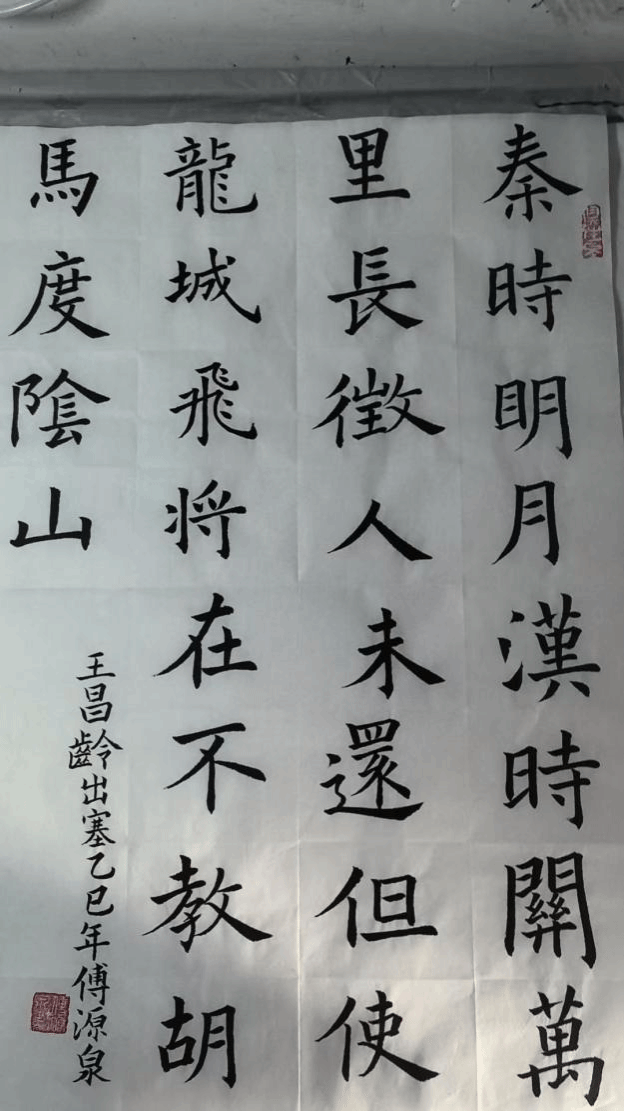 秦時明月漢時關萬
里長徵人未還但使
龍城飛将在不教胡
馬度陰山
王昌齡出塞乙巳年傅源泉